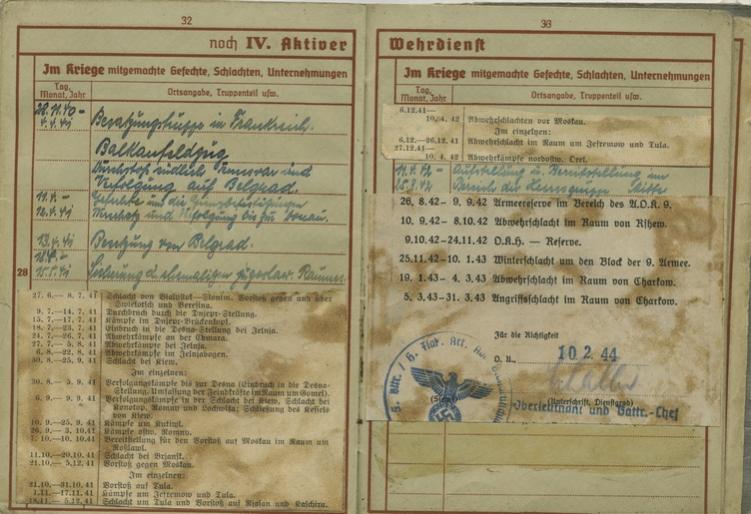 32
noch IV. Aktiver
Im Kriege mitgemachte Gefechte, Schlachten, Unternehmungen
Tag, Monat, Jahr
Ortsangabe, Truppenteil usw.
28.11.40 –
4.4.41
Besatzungstruppe in Frankreich.
Balkanfeldzug
Durchstoß südlich Temesvar und
Verfolgung auf Belgrad.
11.4. –
Gefechte um die
12.4.41
Durchstoß und Verfolgung bis zur Donau.
13.4.41
Besetzung von Belgrad.
28
Sicherung d. ehemaligen jugoslaw. Raumes
27. 6.— 8. 7. 41 Schlacht von Bialystok—Slonim. Vorstoß gegen und über
und Beresina.
9. 7.—14. 7. 41 Durchbruch durch die Dnjepr-Stellung.
15. 7.—17. 7. 41 Kämpfe im Dnjepr-Brückenkopf.
18. 7.—23. 7. 41 Einbruch in die Desna-Stellung bei Jelnja.
24. 7.—26. 7. 41 Abwehrkämpfe an der
27. 7.— 5. 8. 41 Abwehrkämpfe bei Jelnja.
6. 8.—22. 8. 41 Abwehrkämpfe im Jelnjabogen.
30. 8.—25. 9. 41 Schlacht bei Kiew.
Im einzelnen:
30. 8.— 5. 9. 41 Verfolgungskämpfe bis zur Desna (Einbruch in die Desna-
Stellung, Umfassung der Feindkräfte im Raum um Gomel).
6. 9.— 9. 9. 41 Verfolgungskämpfe in der Schlacht bei Kiew. Schlacht bei
Konotop, Romny und Lochwiza; Schließung des Kessels
von Kiew.
10. 9.—25. 9. 41 Kämpfe um
26. 9.— 3. 10. 41 Kämpfe ostw. Romny.
7. 10.—10. 10. 41 Bereitstellung für den Vorstoß auf Moskau im Raum um
Roßlawl.
11.10.—20.10. 41 Schlacht bei Brjansk.
21.10.— 5.12. 41 Vorstoß gegen Moskau.
Im einzelnen:
21.10.—31.10. 41 Vorstoß auf Tula.
1.11.—17.11. 41 Kämpfe um Jefremow und Tula.
18.11.— 5.12. 41 Schlacht um Tula und Vorstoß auf Rjasan und Kaschira.
33
Wehrdienst
Im Kriege mitgemachte Gefechte, Schlachten, Unternehmungen
Tag, Monat, Jahr
Ortsangabe, Truppenteil usw.
6.12.41—
10. 4. 42 Abwehrschlachten vor Moskau.
Im einzelnen:
6.12.—26.12. 41 Abwehrschlacht im Raum um Jefremow und Tula.
27.12.41—
10. 4. 42 Abwehrkämpfe nordostw. Orel.
11.4.42 –
Aufstellung u. Bereitstellung im
25.8.42
Bereich der Heeresgruppe Mitte
26. 8.42- 9. 9.42 Armeereserve im Bereich des A.O.K. 9.
10. 9.42- 8.10.42 Abwehrschlacht im Raum von Rshew.
9.10.42-24.11.42 O.K.H. — Reserve.
25.11.42-10. 1.43 Winterschlacht um den Block der 9. Armee.
19. 1.43- 4. 3.43 Abwehrschlacht im Raum von Charkow.
5. 3.43-31. 3.43 Angriffsschlacht im Raum von Charkow.
Für die Richtigkeit
O. U., 10. 2. 44
(Unterschrift, Dienstgrad)
Oberleutnant und Battr.-Chef